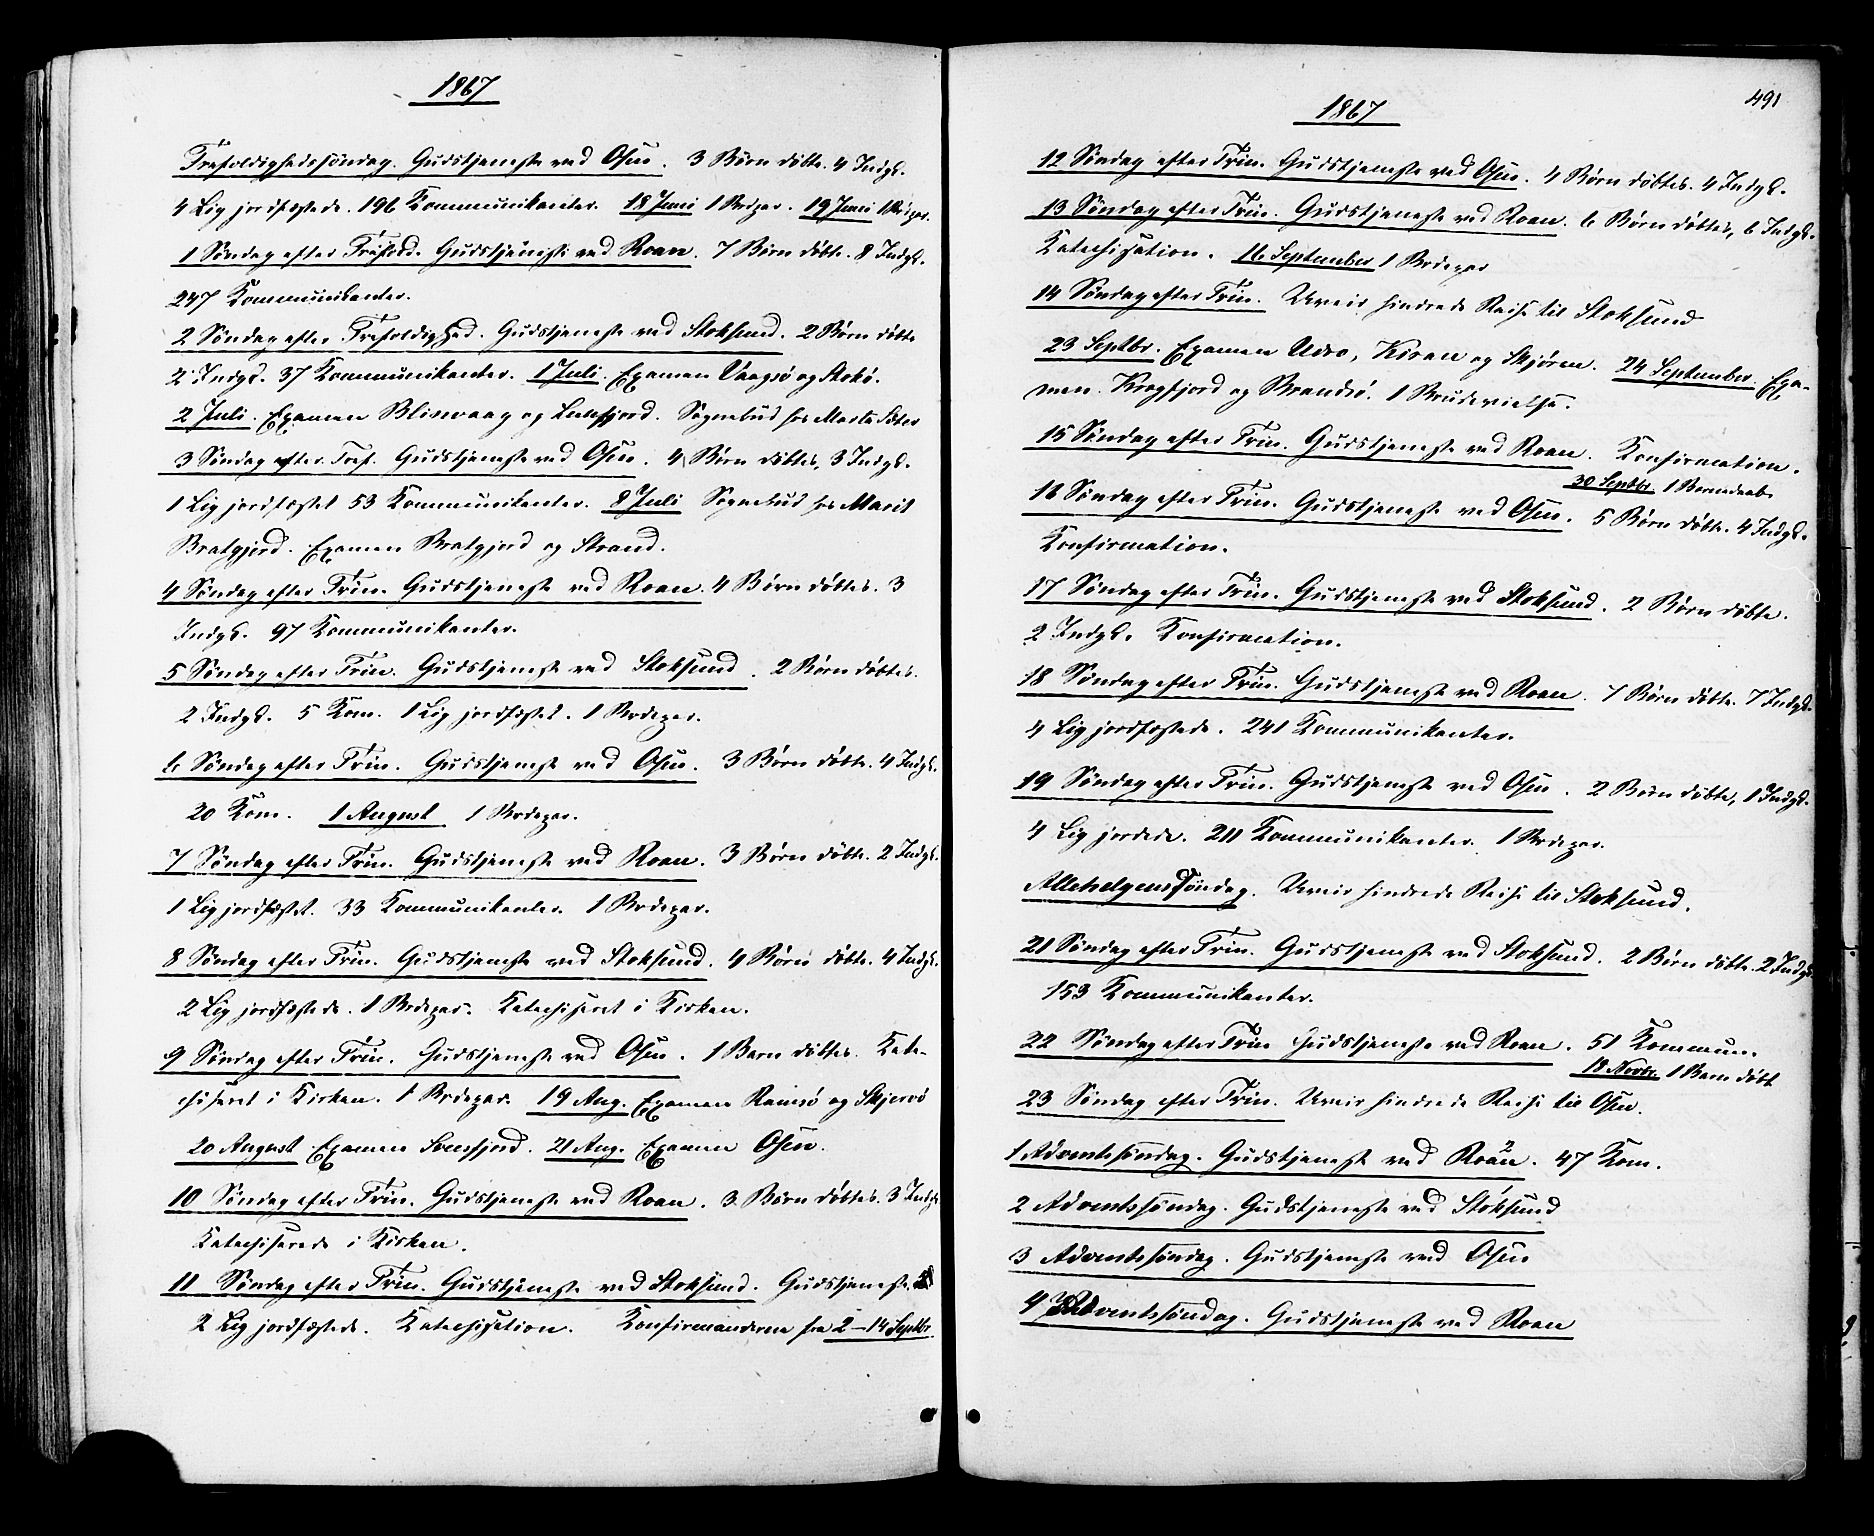 1867
Trefoldighedssöndag. Gudstjeneste ved Osen. 3 Börn döbte. 4 Indgl.
4 Lig jordfæstede. 196 Kommunikanter. 18 Juni 1 Brdepar. 19 Juni 1 Brdepar.
1 Söndag efter Trefold. Gudstjeneste ved Roan. 7 Börn döbte. 8 Indgl.
247 Kommunikanter.
2 Söndag efter Trefoldighed. Gudstjeneste ved Stoksund. 2 Börn döbte
2 Indgl. 37 Kommunikanter. 1 Juli. Examen Vaagsö og Stokö.
2 Juli. Examen Blixvaag og Sognebud hos
3 Söndag efter Tref. Gudstjeneste ved Osen. 4 Börn döbtes, 3 Indgl.
1 Lig jordfæstet 53 Kommunikanter. 8 Juli Sognebud hos Marit
Bratgjerd. Examen Bratgjerd og Strand.
4 Söndag efter Trin. Gudstjeneste ved Roan. 4 Börn döbtes. 3
Indgl. 97 Kommunikanter.
5 Söndag efter Trin. Gudstjeneste ved Stoksund. 2 Börn döbtes.
2 Indgl. 5 Kom. 1 Lig jordfæstet. 1 Brdepar.
6 Söndag efter Trin. Gudstjeneste ved Osen. 3 Börn döbte. 4 Indgl.
20 Kom. 1 August 1 Brdepar.
7 Söndag efter Trin. Gudstjeneste ved Roan. 3 Börn döbte. 2 Indgl.
1 Lig jordfæstet. 33 Kommunikanter. 1 Brdepar.
8 Söndag efter Trin. Gudstjeneste ved Stoksund. 4 Börn döbte. 4 Indgl.
2 Lig jordfæstede. 1 Brdepar. Katechiseret i Kirken.
9 Söndag efter Trin. Gudstjeneste ved Osen. 1 Barn döbtes. Kate-
chiseret i Kirken. 1 Brdepar. 19 Aug. Examen Ramsö og Skjervö
20 August Examen Svensfjord. 21 Aug. Examen Osen.
10 Söndag efter Trin. Gudstjeneste ved Roan. 3 Börn döbtes. 3 Indgl.
Katechiserede i Kirken.
11 Söndag efter Trin. Gudstjeneste ved Stoksund. Gudstjeneste.
2 Lig jordfæstede. Katechisation. Konfirmanderne fra 2–14 Septbr.
491
1867
12 Söndag efter Trin. Gudstjeneste ved Osen. 4 Börn döbtes. 4 Indgl.
13 Söndag efter Trin. Gudstjeneste ved Roan. 6 Börn döbtes, 6 Indgl.
Katechisation. 16 September 1 Brdepar
14 Söndag efter Trin. Uveir hindrede Reise til Stoksund
23 Septbr. Examen Udro, Kiran og Skjören. 24 September Exa-
men. Krogfjord og Brandsö. 1 Brudevielse.
15 Söndag efter Trin. Gudstjeneste ved Roan. Konfirmation.
30 Septbr. 1 Barnedaab
16 Söndag efter Trin. Gudstjeneste ved Osen. 5 Börn döbte. 4 Indgl.
Konfirmation.
17 Söndag efter Trin. Gudstjeneste ved Stoksund. 2 Börn döbte.
2 Indgl. Konfirmation.
18 Söndag efter Trin. Gudstjeneste ved Roan. 7 Börn döbte. 7 Indgl.
4 Lig jordfæstede. 241 Kommunikanter.
19 Söndag efter Trin. Gudstjeneste ved Osen. 2 Börn döbte, 1 Indgl.
4 Lig jordede. 211 Kommunikanter. 1 Brdepar.
Allehelgenssöndag. Uveir hindrede Reise til Stoksund.
21 Söndag efter Trin. Gudstjeneste ved Stoksund. 2 Börn döbte. 2 Indgl.
153 Kommunikanter.
22 Söndag efter Trin Gudstjeneste ved Roan. 51 Kommun.
18 Novbr. 1 Barn döbt
23 Söndag efter Trin. Uveir hindrede Reise til Osen.
1 Adventssöndag. Gudstjeneste ved Roan. 47 Kom.
2 Adventssöndag. Gudstjeneste ved Stoksund
3 Adventssöndag. Gudstjeneste ved Osen
4 Adventssöndag. Gudstjeneste ved Roan